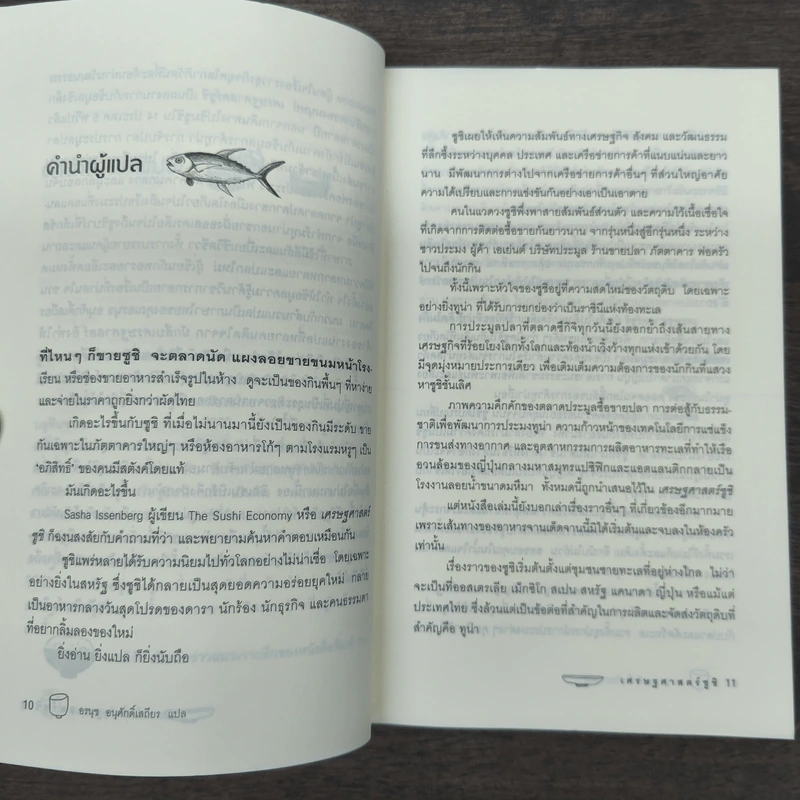 คำนำผู้แปล
ที่ไหนๆ ก็ขายซูชิ จะตลาดนัด แผงลอยขายขนมหน้าโรง-
เรียน หรือช่องขายอาหารสำเร็จรูปในห้าง ดูจะเป็นของกินพื้นๆ ที่หาง่าย
และจ่ายในราคาถูกยิ่งกว่าผัดไทย
เกิดอะไรขึ้นกับซูชิ ที่เมื่อไม่นานมานี้ยังเป็นของกินมีระดับ ขาย
กันเฉพาะในภัตตาคารใหญ่ๆ หรือห้องอาหารโก้ๆ ตามโรงแรมหรูๆ เป็น
'อภิสิทธิ์' ของคนมีสตังค์โดยแท้
มันเกิดอะไรขึ้น
Sasha Issenberg ผู้เขียน The Sushi Economy หรือ เศรษฐศาสตร์
ซูชิ ก็คงสงสัยกับคำถามที่ว่า และพยายามค้นหาคำตอบเหมือนกัน
ซูชิแพร่หลายได้รับความนิยมไปทั่วโลกอย่างไม่น่าเชื่อ โดยเฉพาะ
อย่างยิ่งในสหรัฐ ซึ่งซูชิได้กลายเป็นสุดยอดความอร่อยยุคใหม่ กลาย
เป็นอาหารกลางวันสุดโปรดของดารา นักร้อง นักธุรกิจ และคนธรรมดา
ที่อยากลิ้มลองของใหม่
ยิ่งอ่าน ยิ่งแปล ก็ยิ่งนับถือ
10 อรนุช อนุศักดิ์เสถียร แปล
ซูชิเผยให้เห็นความสัมพันธ์ทางเศรษฐกิจ สังคม และวัฒนธรรม
ที่ลึกซึ้งระหว่างบุคคล ประเทศ และเครือข่ายการค้าที่แนบแน่นและยาว
นาน มีพัฒนาการต่างไปจากเครือข่ายการค้าอื่นๆ ที่ส่วนใหญ่อาศัย
ความได้เปรียบและการแข่งขันกันอย่างเอาเป็นเอาตาย
คนในแวดวงซูชิพึ่งพาสายสัมพันธ์ส่วนตัว และความไว้เนื้อเชื่อใจ
ที่เกิดจากการติดต่อซื้อขายกันยาวนาน จากรุ่นหนึ่งสู่อีกรุ่นหนึ่ง ระหว่าง
ชาวประมง ผู้ค้า เอเย่นต์ บริษัทประมูล ร้านขายปลา ภัตตาคาร พ่อครัว
ไปจนถึงนักกิน
ทั้งนี้เพราะหัวใจของซูชิอยู่ที่ความสดใหม่ของวัตถุดิบ โดยเฉพาะ
อย่างยิ่งทูน่า ที่ได้รับการยกย่องว่าเป็นราชินีแห่งท้องทะเล
การประมูลปลาที่ตลาดซึกิจิทุกวันนี้ยังตอกย้ำถึงเส้นสายทาง
เศรษฐกิจที่ร้อยโยงโลกทั้งโลกและท้องน้ำเวิ้งว้างทุกแห่งเข้าด้วยกัน โดย
มีจุดมุ่งหมายประการเดียว เพื่อเติมเต็มความต้องการของนักกินที่แสวง
หาซูชิชั้นเลิศ
ภาพความคึกคักของตลาดประมูลซื้อขายปลา การต่อสู้กับธรรม-
ชาติเพื่อพัฒนาการประมงทูน่า ความก้าวหน้าของเทคโนโลยีการแช่แข็ง
การขนส่งทางอากาศ และอุตสาหกรรมการผลิตอาหารทะเลที่ทำให้เรือ
อวนล้อมของญี่ปุ่นกลางมหาสมุทรแปซิฟิกและแอตแลนติกกลายเป็น
โรงงานลอยน้ำขนาดมหึมา ทั้งหมดนี้ถูกนำเสนอไว้ใน เศรษฐศาสตร์ซูชิ
แต่หนังสือเล่มนี้ยังบอกเล่าเรื่องราวอื่นๆ ที่เกี่ยวข้องอีกมากมาย
เพราะเส้นทางของอาหารจานเด็ดจานนี้มิได้เริ่มต้นและจบลงในห้องครัว
เท่านั้น
เรื่องราวของซูชิเริ่มต้นตั้งแต่ชุมชนชายทะเลที่อยู่ห่างไกล ไม่ว่า
จะเป็นที่ออสเตรเลีย เม็กซิโก สเปน สหรัฐ แคนาดา ญี่ปุ่น หรือแม้แต่
ประเทศไทย ซึ่งล้วนแต่เป็นข้อต่อที่สำคัญในการผลิตและจัดส่งวัตถุดิบที่
สำคัญคือ ทูน่า
เศรษฐศาสตร์ซูชิ 11